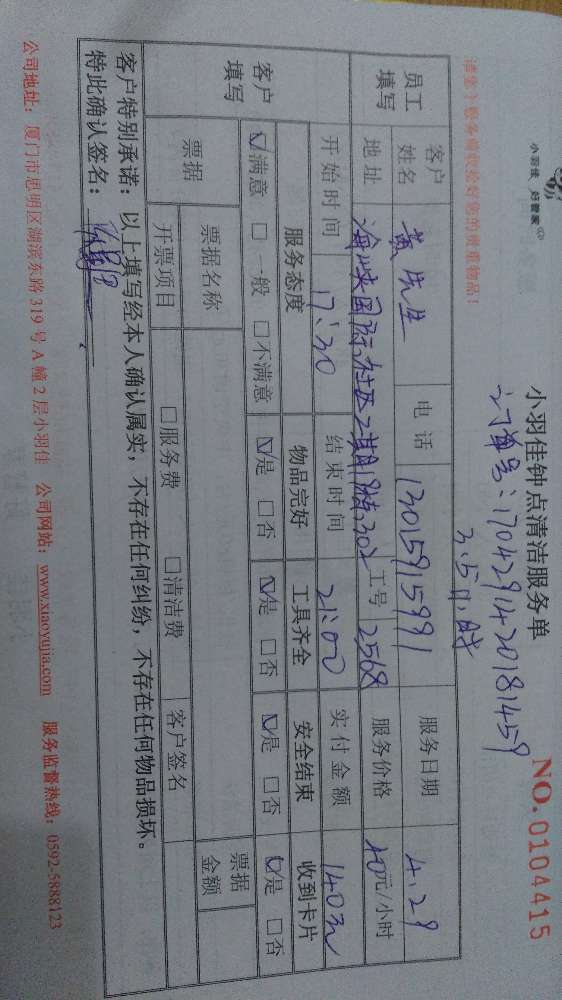 小羽佳 好管家
小羽佳钟点清洁服务单
NO. 0104415
订单号:1704291420181459
3.5小时
员工填写
客户姓名 黄先生 电话 13015915991 服务日期 4.29
地址 海峡国际社区2期 302 工号 2568 服务价格 40元/小时
开始时间 17:30 结束时间 21:00 实付金额 140元
客户填写
服务态度 物品完好 工具齐全 安全结束 收到卡片
☑满意 □一般 □不满意 ☑是 □否 ☑是 □否 ☑是 □否 ☑是 □否
票据 票据名称 票据金额
开票项目 □服务费 □清洁费 客户签名
客户特别承诺:以上填写经本人确认属实,不存在任何纠纷,不存在任何物品损坏。
特此确认签名:
公司地址:厦门市思明区湖滨东路319号A幢2层小羽佳 公司网站:www.xiaoyujia.com 服务监督热线:0592-5888123